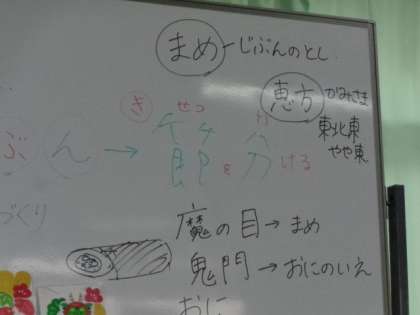 まめ ー じぶんのとし
恵方 かみさま
東北東
やや東
き せつ わ
ぶん → 節を分ける
づくり
魔の目 → まめ
鬼門 → おにのいえ
おに